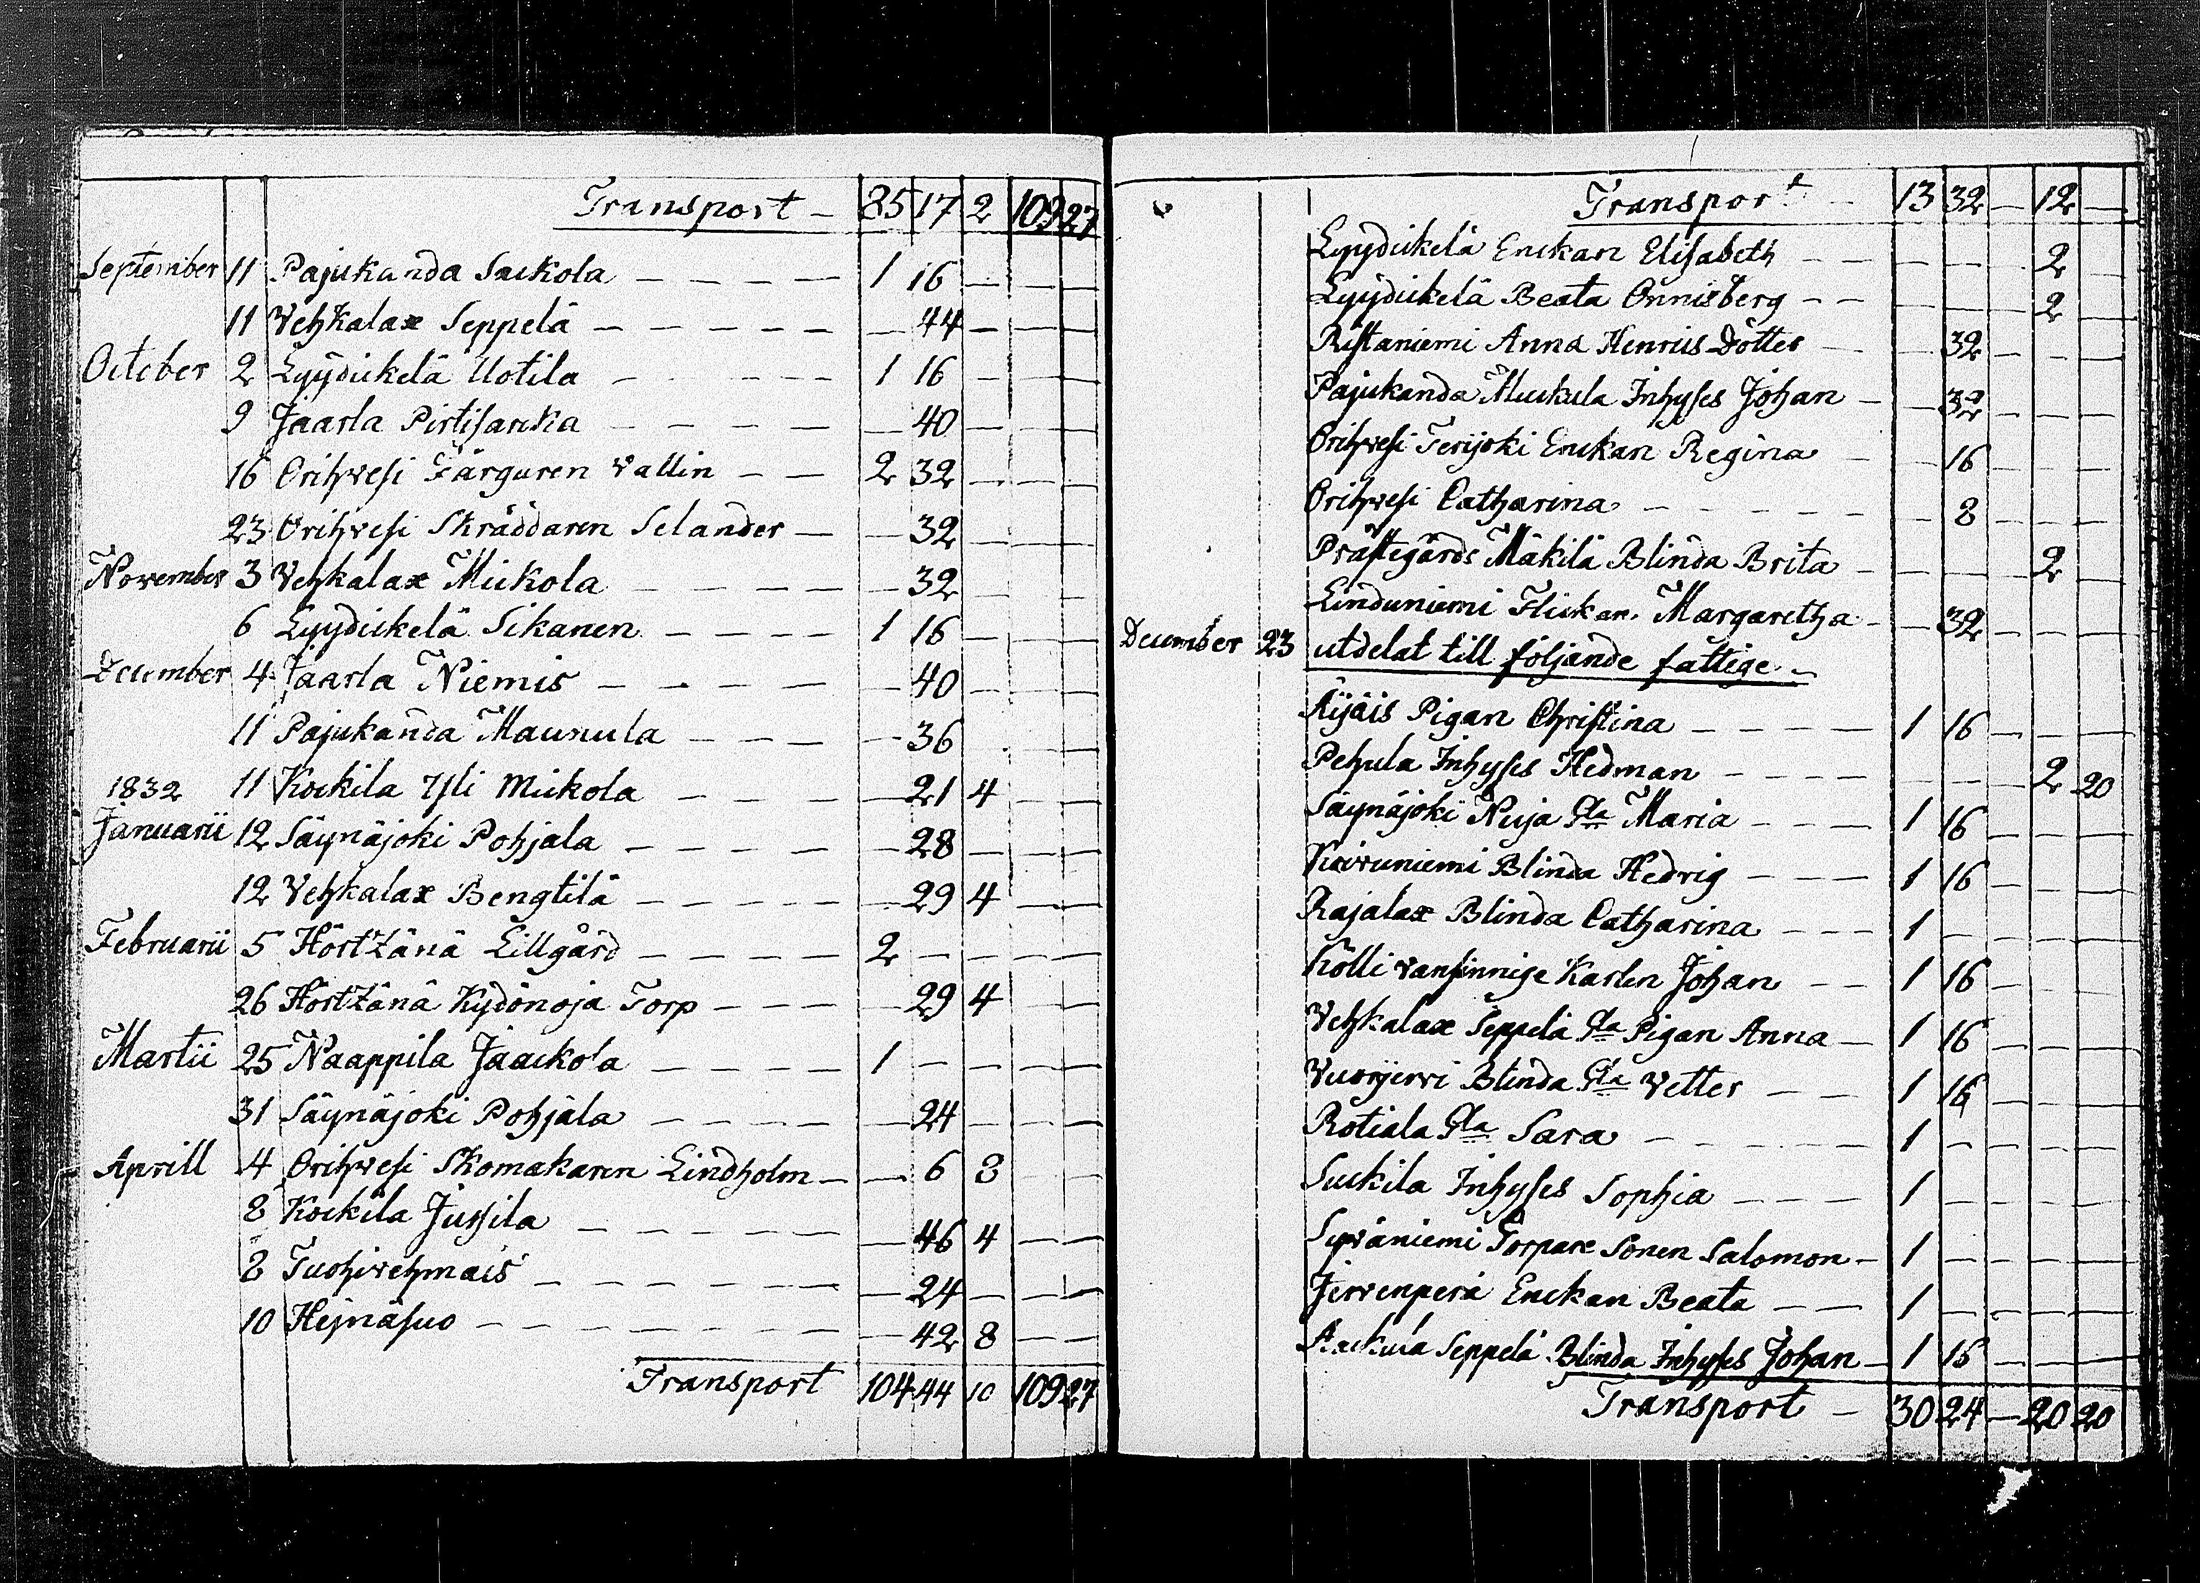 Transport - 85 17 2 109 27
September 11 Pajukanda Sackola - - - - 1 16 - - -
11 Vehkalax Seppelä - - - - - - 44 - - -
October 2 Lyydickelä Uotila - - - - 1 16 - - -
9 Jaarla Pirtisarcka - - - - - 40 - - -
16 Orihvesi Färguren Vallin - - 2 32 - - -
23 Orihvesi Skräddaren Selander - - 32 - - -
November 3 Vehkalax Mickola - - - - - 32 - - -
6 Lyydickelä Sikanen - - - - 1 16 - - -
December 4 Jaarla Niemis - - - - - 40 - - -
11 Pajukanda Maunula - - - - 36 - - -
1832 11 Kockila Yli Mickola - - - - 21 4 - -
Januarii 12 Säynäjoki Pohjala - - - - - - 28 - - -
12 Vehkalax Bengtilä - - - - - - 29 4 - -
Februarii 5 Hörtzänä Lillgård - - - - 2 - - - -
26 Hörtzänä Kydönoja Torp - - - - 29 4 - -
Martii 25 Naappila Jaackola - - - - 1 - - - -
31 Säynäjoki Pohjala - - - - - - 24 - - -
Aprill 4 Orihvesi Skomakaren Lindholm - - 6 8 - -
8 Kockila Jussila - - - - - - 46 4 - -
8 Tuohivehmais - - - - - - - 24 - - -
10 Hejnäsuo - - - - - - - - 42 8 - -
Transport 104 44 10 109 27
Transport - 13 32 - 12 -
Lyydickelä Enckan Elisabeth - - - - - 2 -
Lyydickelä Beata Önnisberg - - - - - 2 -
Ristaniemi Anna Henrics Dotter - - 32 - - -
Pajukanda Muckula Inhyses Johan - - 32 - - -
Orihvesi Terijoki Enckan Regina - - 16 - - -
Orihvesi Catharina - - - - - - 8 - - -
Prästegårds Mäkilä Blinda Brita - - - - 2 -
Linduniemi Flickan Margaretha - - 32 - - -
December 23 utdelat till följande fattige -
Äijäis Pigan Christina - - - - - 1 16 - - -
Pehula Inhyses Hedman - - - - - - - 2 20
Säynäjoki Nuja Gla Maria - - - 1 16 - - -
Koivuniemi Blinda Hedvig - - - 1 16 - - -
Rajalax Blinda Catharina - - - 1 - - - -
Kölli vansinnige Karlen Johan - - 1 16 - - -
Vehkalax Seppelä Gla Pigan Anna - 1 16 - - -
Vuorijervi Blinda Gla Vetter - - 1 16 - - -
Rotiala Gla Sara - - - - - 1 - - - -
Suckila Inhyses Sophia - - - 1 - - - -
Syväniemi Torpare Sonen Salomon - 1 - - - -
Jervenperä Enckan Beata - - 1 - - - -
Seppelä Blinda Inhyses Johan - 1 16 - - -
Transport - 30 24 - 20 20